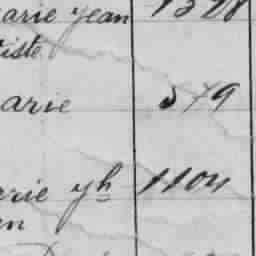 arie jean 1328
tiste
arie 549
erie yh 1104
en